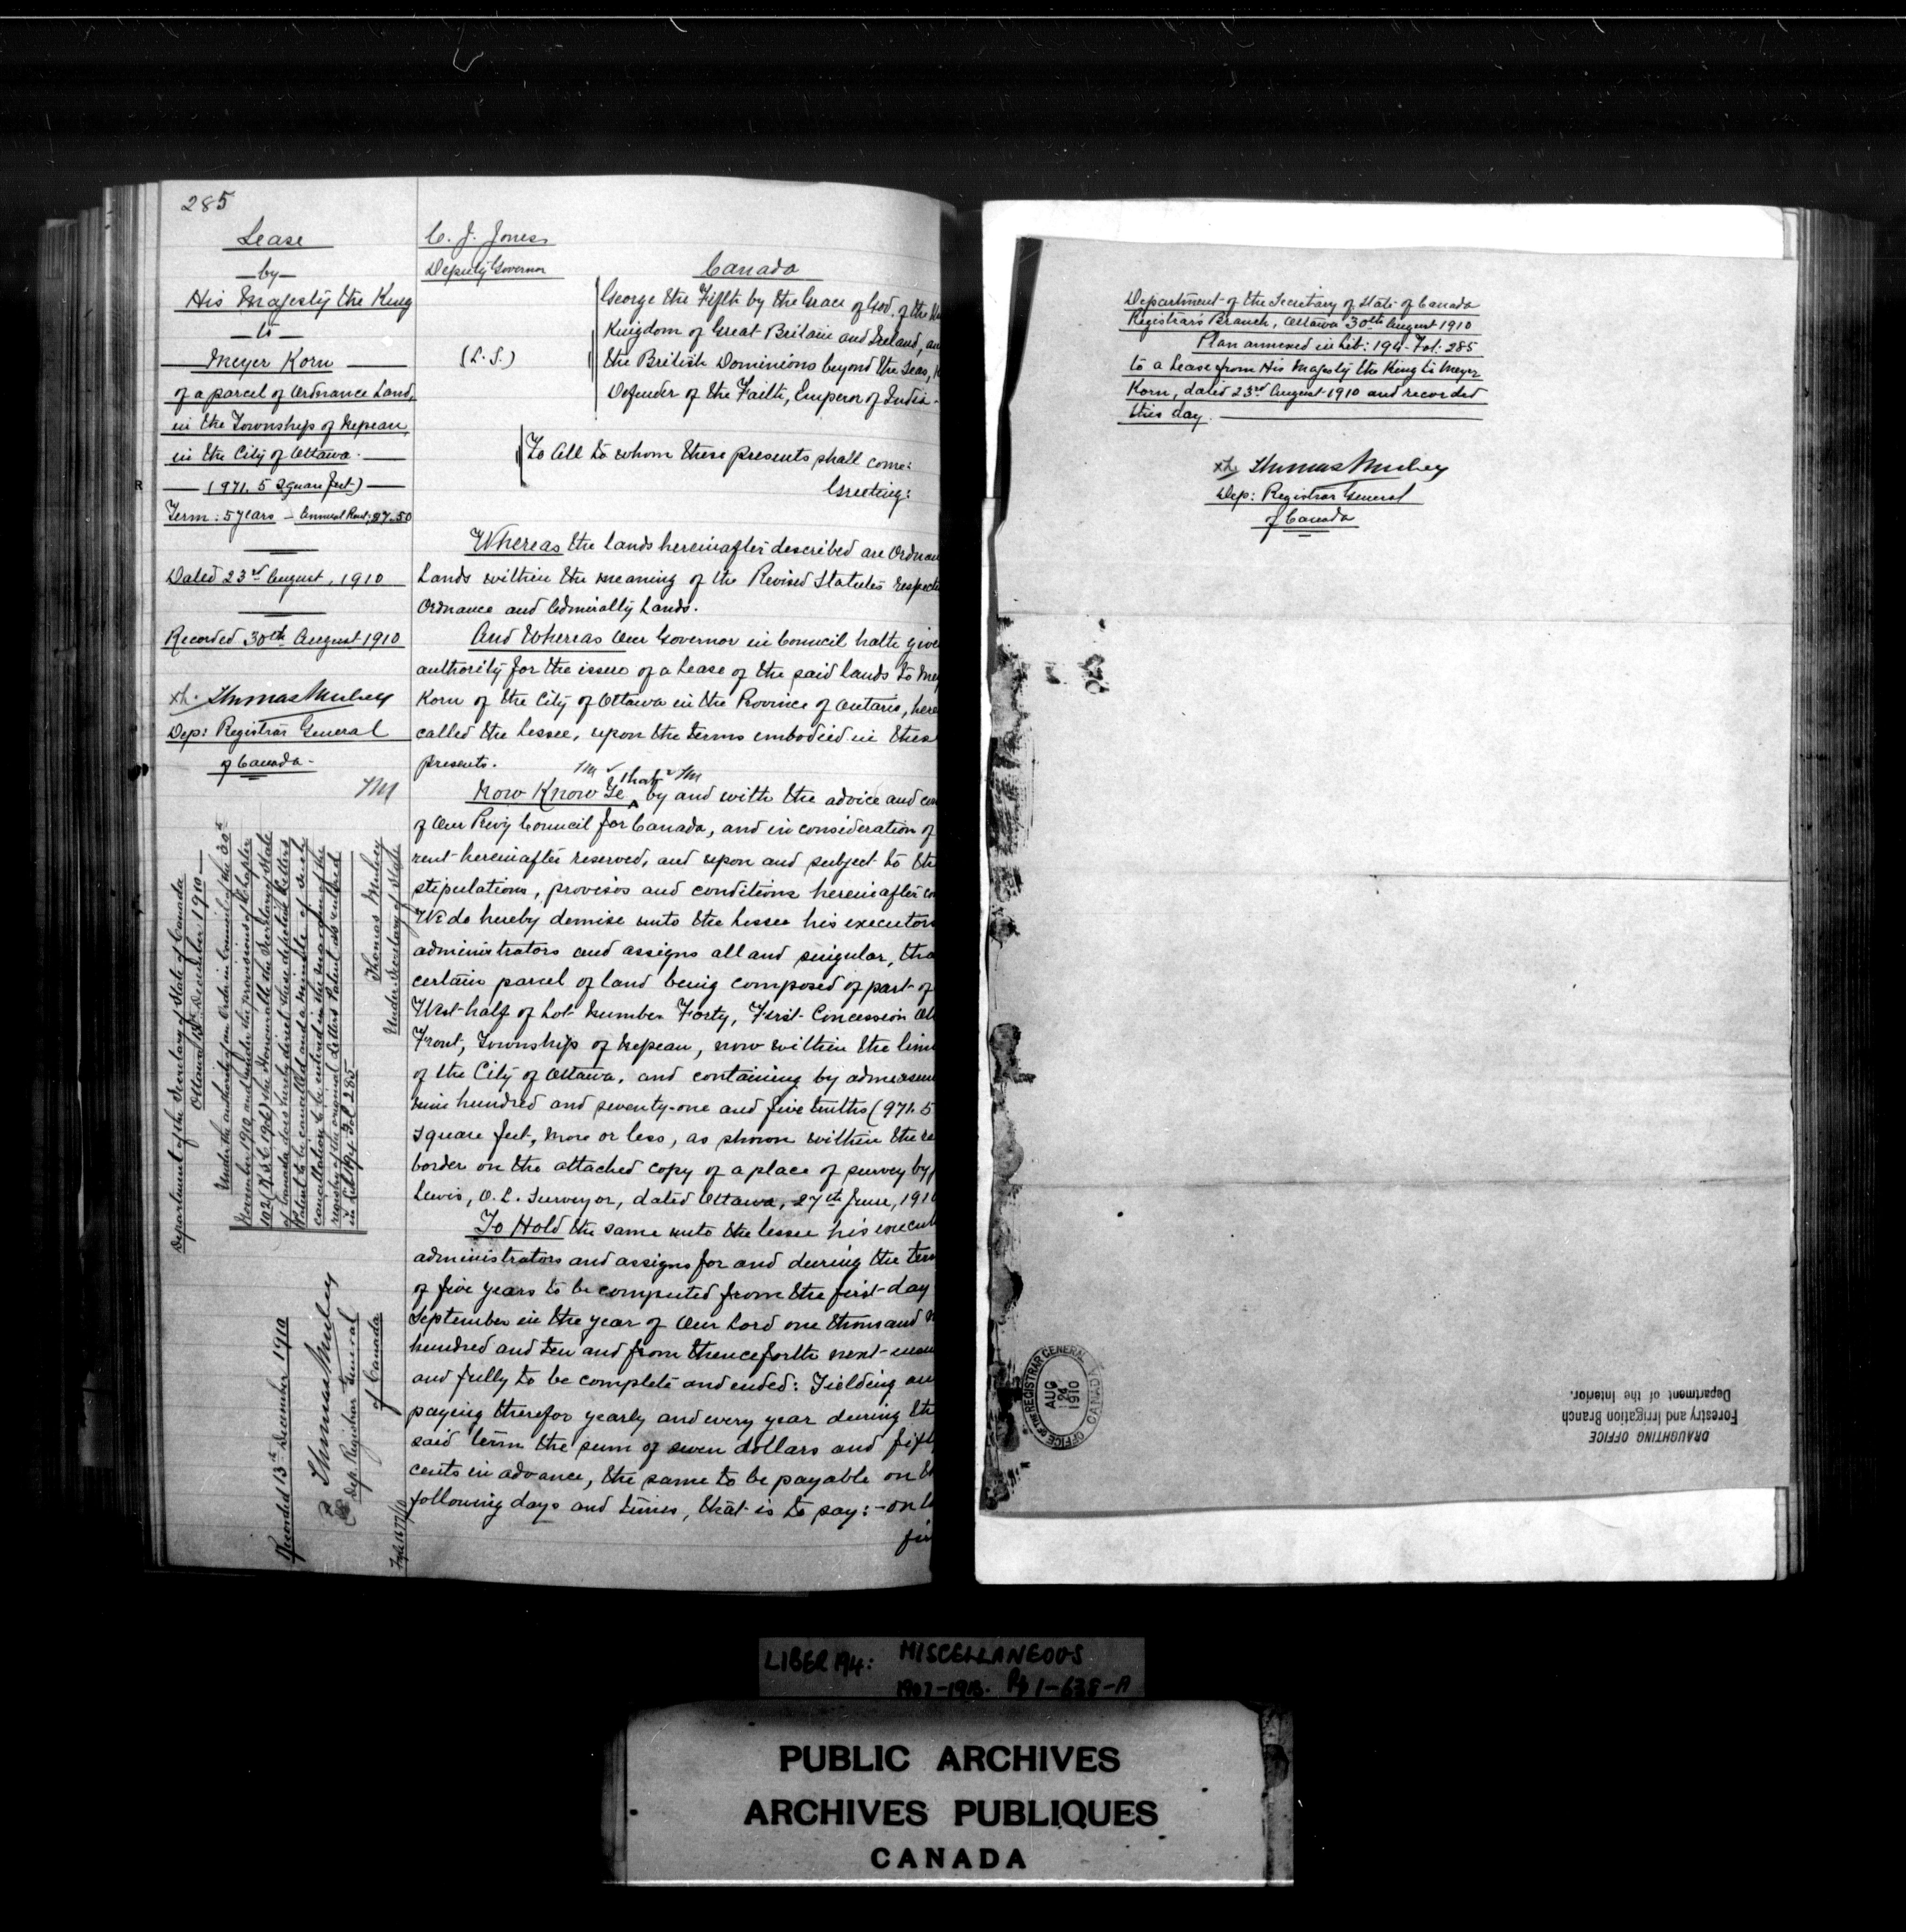 285
Lease
—by—
His Majesty the King
—to—
Meyer Korn
of a parcel of Ordnance Land,
in the Township of Nepean,
in the City of Ottawa.
(971.5 Square feet)
Term: 5 years — Annual Rent:
Dated 23rd August, 1910
Recorded 30th August 1910
Thomas Mulvey
Dep: Registrar General
of Canada.
TM
Department of the Secretary of State of Canada
Ottawa 13th December 1910
Under the authority of an Order in Council of the
November 1910 and under the provisions of Chapter
102 (R.S.C. 1906) the Honourable the Secretary of State
of Canada does hereby direct these defective Letters
Patent to be cancelled and a minute of such
cancellation to be entered in the margin of the
registry of the original Letters Patent as entered
in Lib 194 Fol 285
Thomas Mulvey
Under Secretary of State
Recorded 13th December 1910
Thomas Mulvey
Dep. Registrar General
of Canada
C. J. Jones
Deputy Governor
Canada
(L.S.)
George the Fifth by the Grace of God, of the
Kingdom of Great Britain and Ireland, an
the British Dominions beyond the Seas, K
Defender of the Faith, Emperor of India.
To All to whom these presents shall come:
Greeting:
Whereas the lands hereinafter described are Ordnan
Lands within the meaning of the Revised Statutes respecti
Ordnance and Admiralty Lands.
And Whereas Our Governor in Council hath give
authority for the issue of a Lease of the said lands to Mey
Korn of the City of Ottawa in the Province of Ontario, here
called the Lessee, upon the terms embodied in these
presents.
TM that TM
Now Know Ye by and with the advice and con
of Our Privy Council for Canada, and in consideration of
rent hereinafter reserved, and upon and subject to the
stipulations, provisos and conditions hereinafter co
We do hereby demise unto the Lessee his executors
administrators and assigns all and singular, tha
certain parcel of land being composed of part of
West half of Lot Number Forty, First Concession Ott
Front, Township of Nepean, now within the lim
of the City of Ottawa, and containing by admeasure
nine hundred and seventy-one and five tenths (971.5
square feet, more or less, as shown within the re
border on the attached copy of a place of survey by
Lewis, O. L. Surveyor, dated Ottawa, 27th June, 1910
To Hold the same unto the lessee his execut
administrators and assigns for and during the term
of five years to be computed from the first day
September in the year of Our Lord one thousand n
hundred and ten and from thenceforth next ensu
and fully to be complete and ended: Yielding an
paying therefor yearly and every year during the
said term the sum of seven dollars and fift
cents in advance, the same to be payable on th
following days and times, that is to say: — on
fir
Department of the Secretary of State of Canada
Registrar's Branch, Ottawa 30th August 1910
Plan annexed in Lib: 194 - Fol: 285
to a Lease from His Majesty the King to Meyer
Korn, dated 23rd August 1910 and recorded
this day.
Thomas Mulvey
Dep: Registrar General
of Canada
OFFICE OF THE REGISTRAR GENERAL
AUG
24
1910
CANADA
DRAUGHTING OFFICE
Forestry and Irrigation Branch
Department of the Interior.
LIBER 194: MISCELLANEOUS
1907-1913. Pp 1-638-A
PUBLIC ARCHIVES
ARCHIVES PUBLIQUES
CANADA